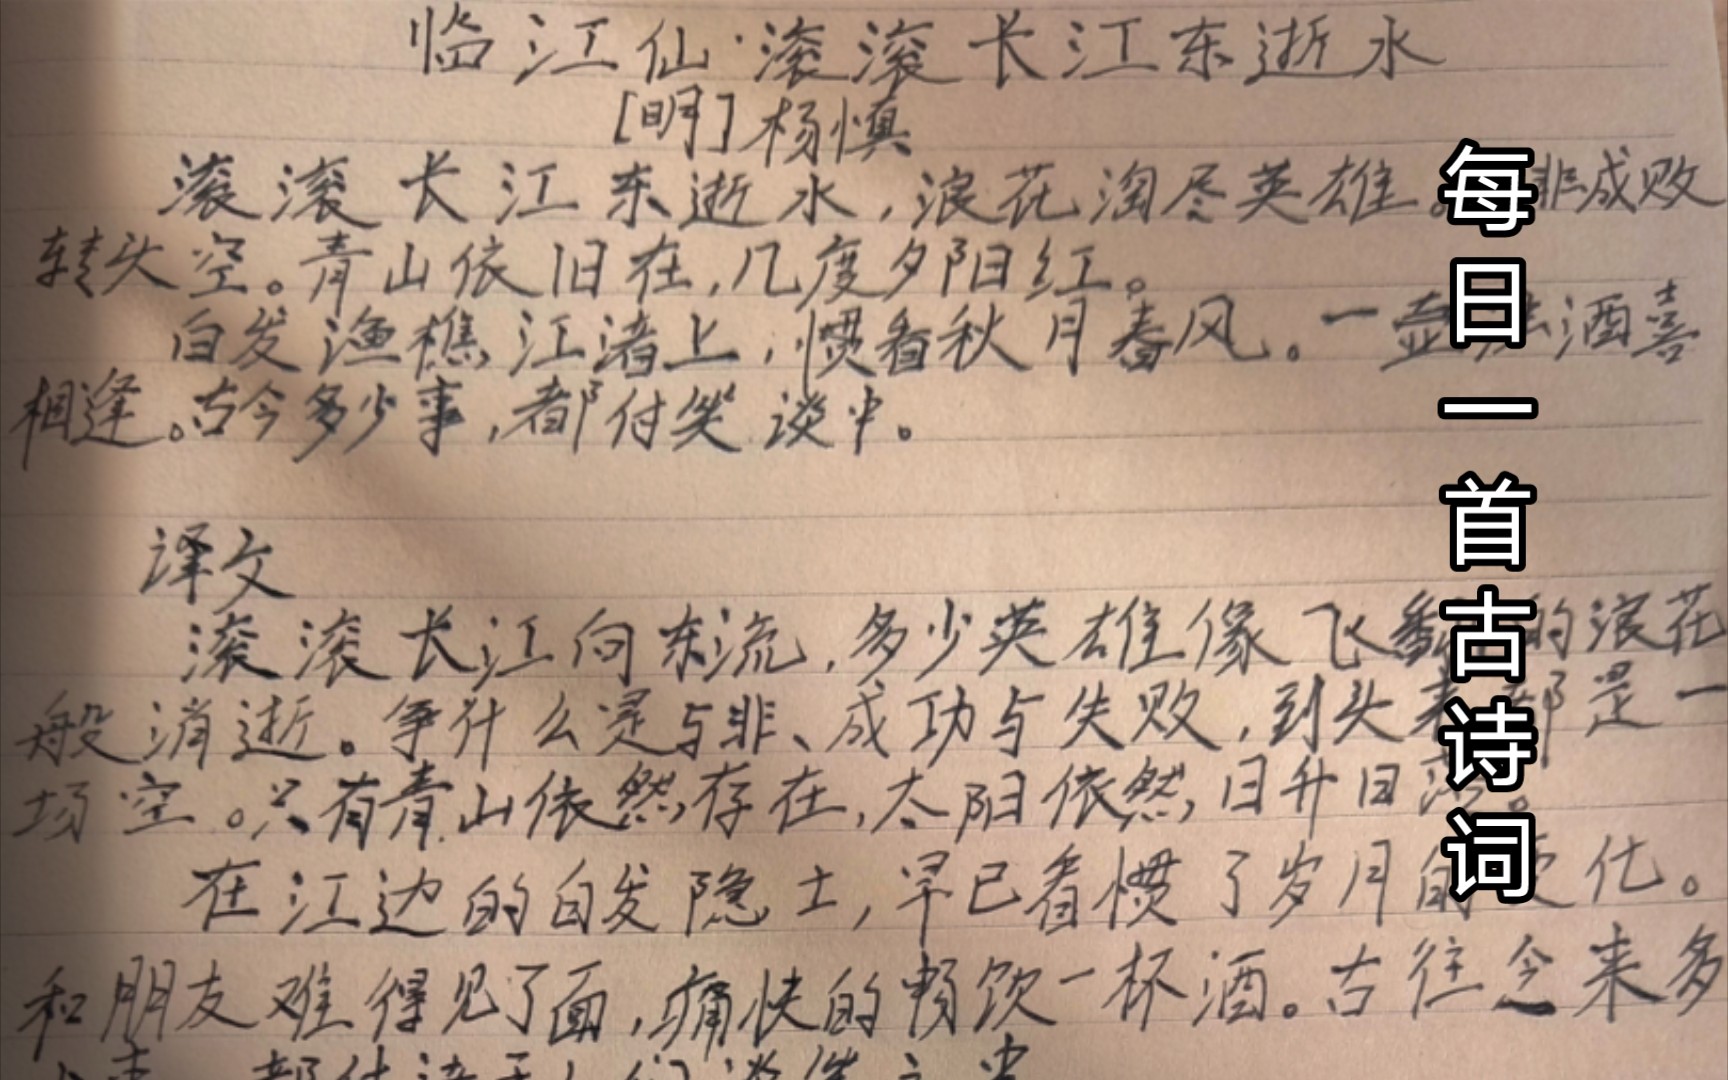 临江仙·滚滚长江东逝水
[明]杨慎
滚滚长江东逝水,浪花淘尽英雄。非成败
转头空。青山依旧在,几度夕阳红。
白发渔樵江渚上,惯看秋月春风。一壶酒喜
相逢。古今多少事,都付笑谈中。
译文
滚滚长江向东流,多少英雄像飞翻的浪花
般消逝。争什么是与非、成功与失败,到头来都是一
场空。只有青山依然存在,太阳依然日升日落。
在江边的白发隐士,早已看惯了岁月的变化。
和朋友难得见了面,痛快的畅饮一杯酒。古往今来多
每日一首古诗词